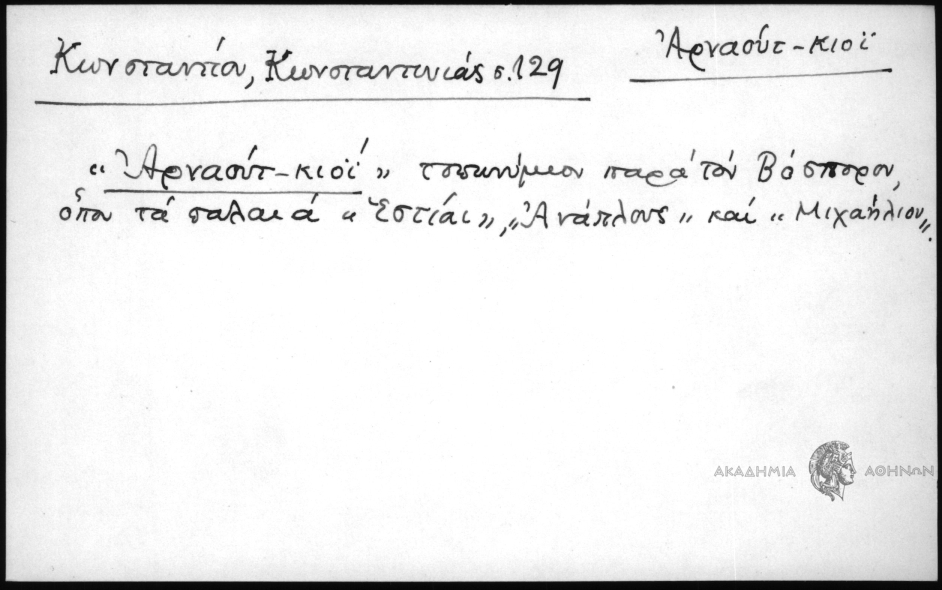 Κωνσταντίου, Κωνσταντινιάς σ.129
Ἀρναούτ-κιοϊ
"Ἀρναούτ-κιοϊ" τοπωνύμιον παρά τόν Βόσπορον,
ὅπου τά παλαιά "Ἑστίαι", "Ἀνάπλους" καί "Μιχαήλιον".
ΑΚΑΔΗΜΙΑ ΑΘΗΝΩΝ